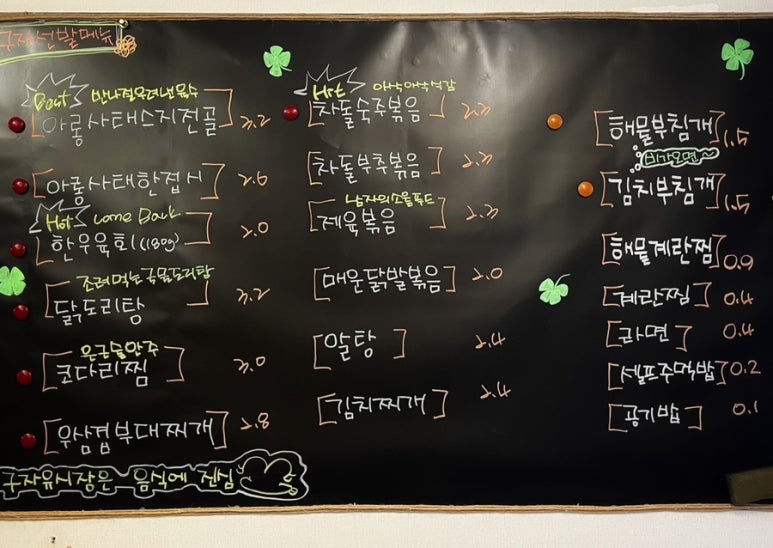 구자선발메뉴
Best 반나절우려낸육수
[아롱사태스지전골] 3.2
[아롱사태한접시] 2.6
Hot Come Back
[한우육회(180g)] 3.0
조려먹는국물도리탕
[닭도리탕] 3.2
은근술안주
[코다리찜] 3.0
[우삼겹부대찌개] 2.8
구자유시장은 음식에 진심
Hot 아삭아삭식감
[차돌숙주볶음]
[차돌부추볶음]
남자의소울푸드
[제육볶음]
[매운닭발볶음] 2.0
[알탕] 2.4
[김치찌개] 2.4
[해물부침개] 1.5
비가오면
[김치부침개] 1.5
[해물계란찜] 0.9
[계란찜] 0.4
[라면] 0.4
[셀프주먹밥] 0.2
[공기밥] 0.1